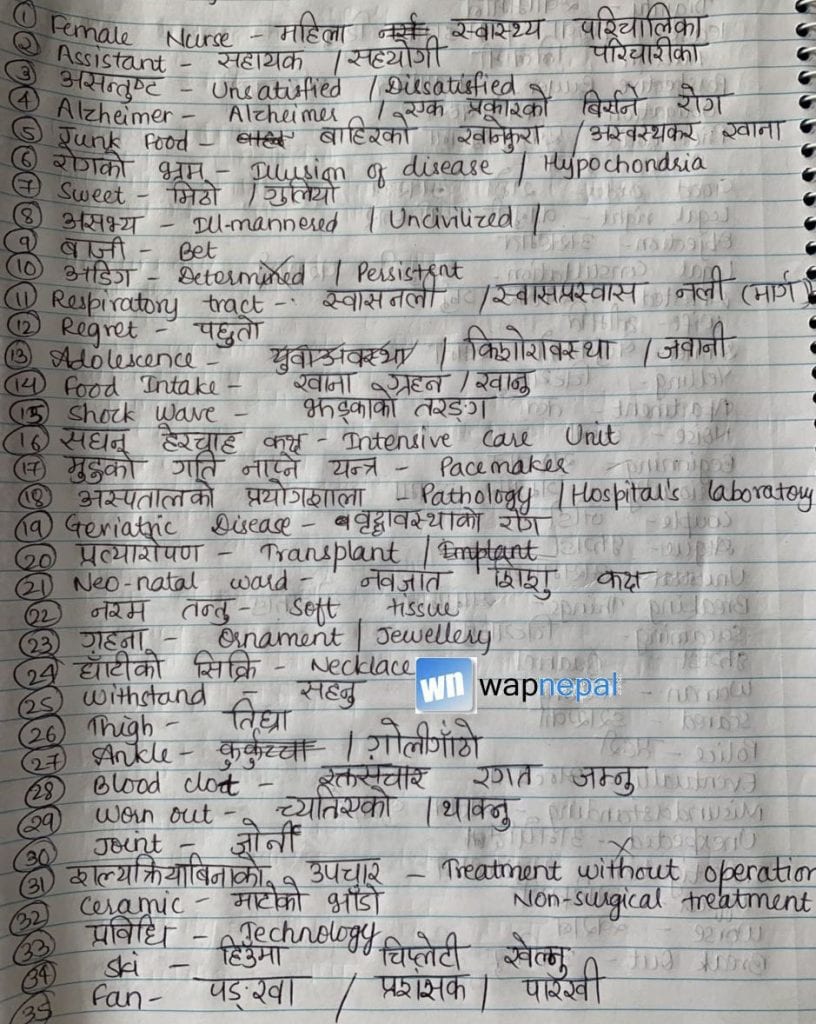 ① Female Nurse - महिला नर्स स्वास्थ्य परिचालिका
② Assistant - सहायक / सहयोगी परिचारीका
③ असन्तुष्ट - Unsatisfied / Dissatisfied
④ Alzheimer - Alzheimer / एक प्रकारको बिर्सने रोग
⑤ Junk Food - बाहिरको खानेकुरा / अस्वस्थकर खाना
⑥ रोगको भ्रम - Illusion of disease / Hypochondria
⑦ Sweet - मिठो / गुलियो
⑧ असभ्य - Ill-mannered / Uncivilized /
⑨ बाजी - Bet
⑩ अडिग - Determined / Persistent
⑪ Respiratory tract - स्वासनली / स्वासप्रस्वास नली (मार्ग)
⑫ Regret - पछुतो
⑬ Adolescence - युवाअवस्था / किशोरावस्था / जवानी
⑭ Food Intake - खाना ग्रहन / खानु
⑮ Shock wave - झड्काको तरङ्ग
⑯ सघन हेरचाह कक्ष - Intensive Care Unit
⑰ मुटुको गति नाप्ने यन्त्र - Pacemaker
⑱ अस्पतालको प्रयोगशाला - Pathology / Hospital's laboratory
⑲ Geriatric Disease - वृद्धावस्थाको रोग
⑳ प्रत्यारोपण - Transplant / Implant
㉑ Neo-natal ward - नवजात शिशु कक्ष
㉒ नरम तन्तु - Soft tissue
㉓ गहना - Ornament / Jewellery
㉔ घाँटीको सिक्रि - Necklace
wn wapnepal
㉕ Withstand - सहनु
㉖ Thigh - तिघ्रा
㉗ Ankle - कुर्कुच्चा / गोलीगाँठो
㉘ Blood clot - रक्तसंचार रगत जम्नु
㉙ Worn out - च्यातिएको / थाक्नु
㉚ Joint - जोर्नी
㉛ शल्यक्रियाबिनाको उपचार - Treatment without operation
㉜ Ceramic - माटोको भाँडो Non-surgical treatment
㉝ प्रविधि - Technology
㉞ Ski - हिउँमा चिप्लेटी खेल्नु
㉟ Fan - पङ्खा / प्रशंसक / पारखी